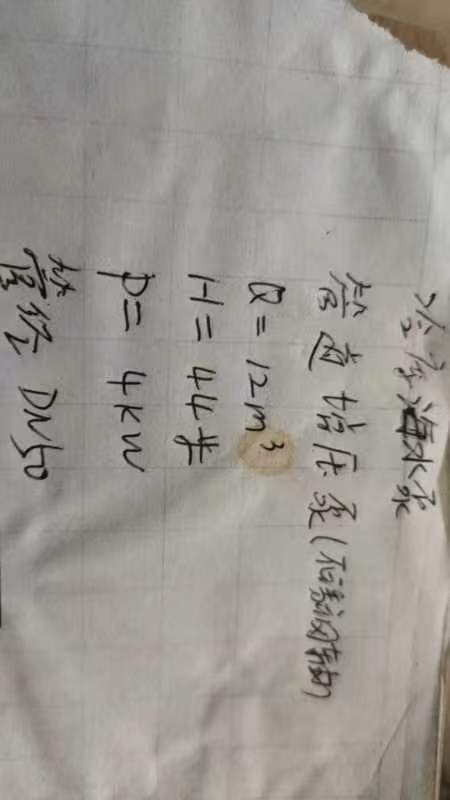 冷库海水泵
管道增压泵(不锈钢轴)
Q = 12m³
H = 44米
P = 4KW
管径 DN50